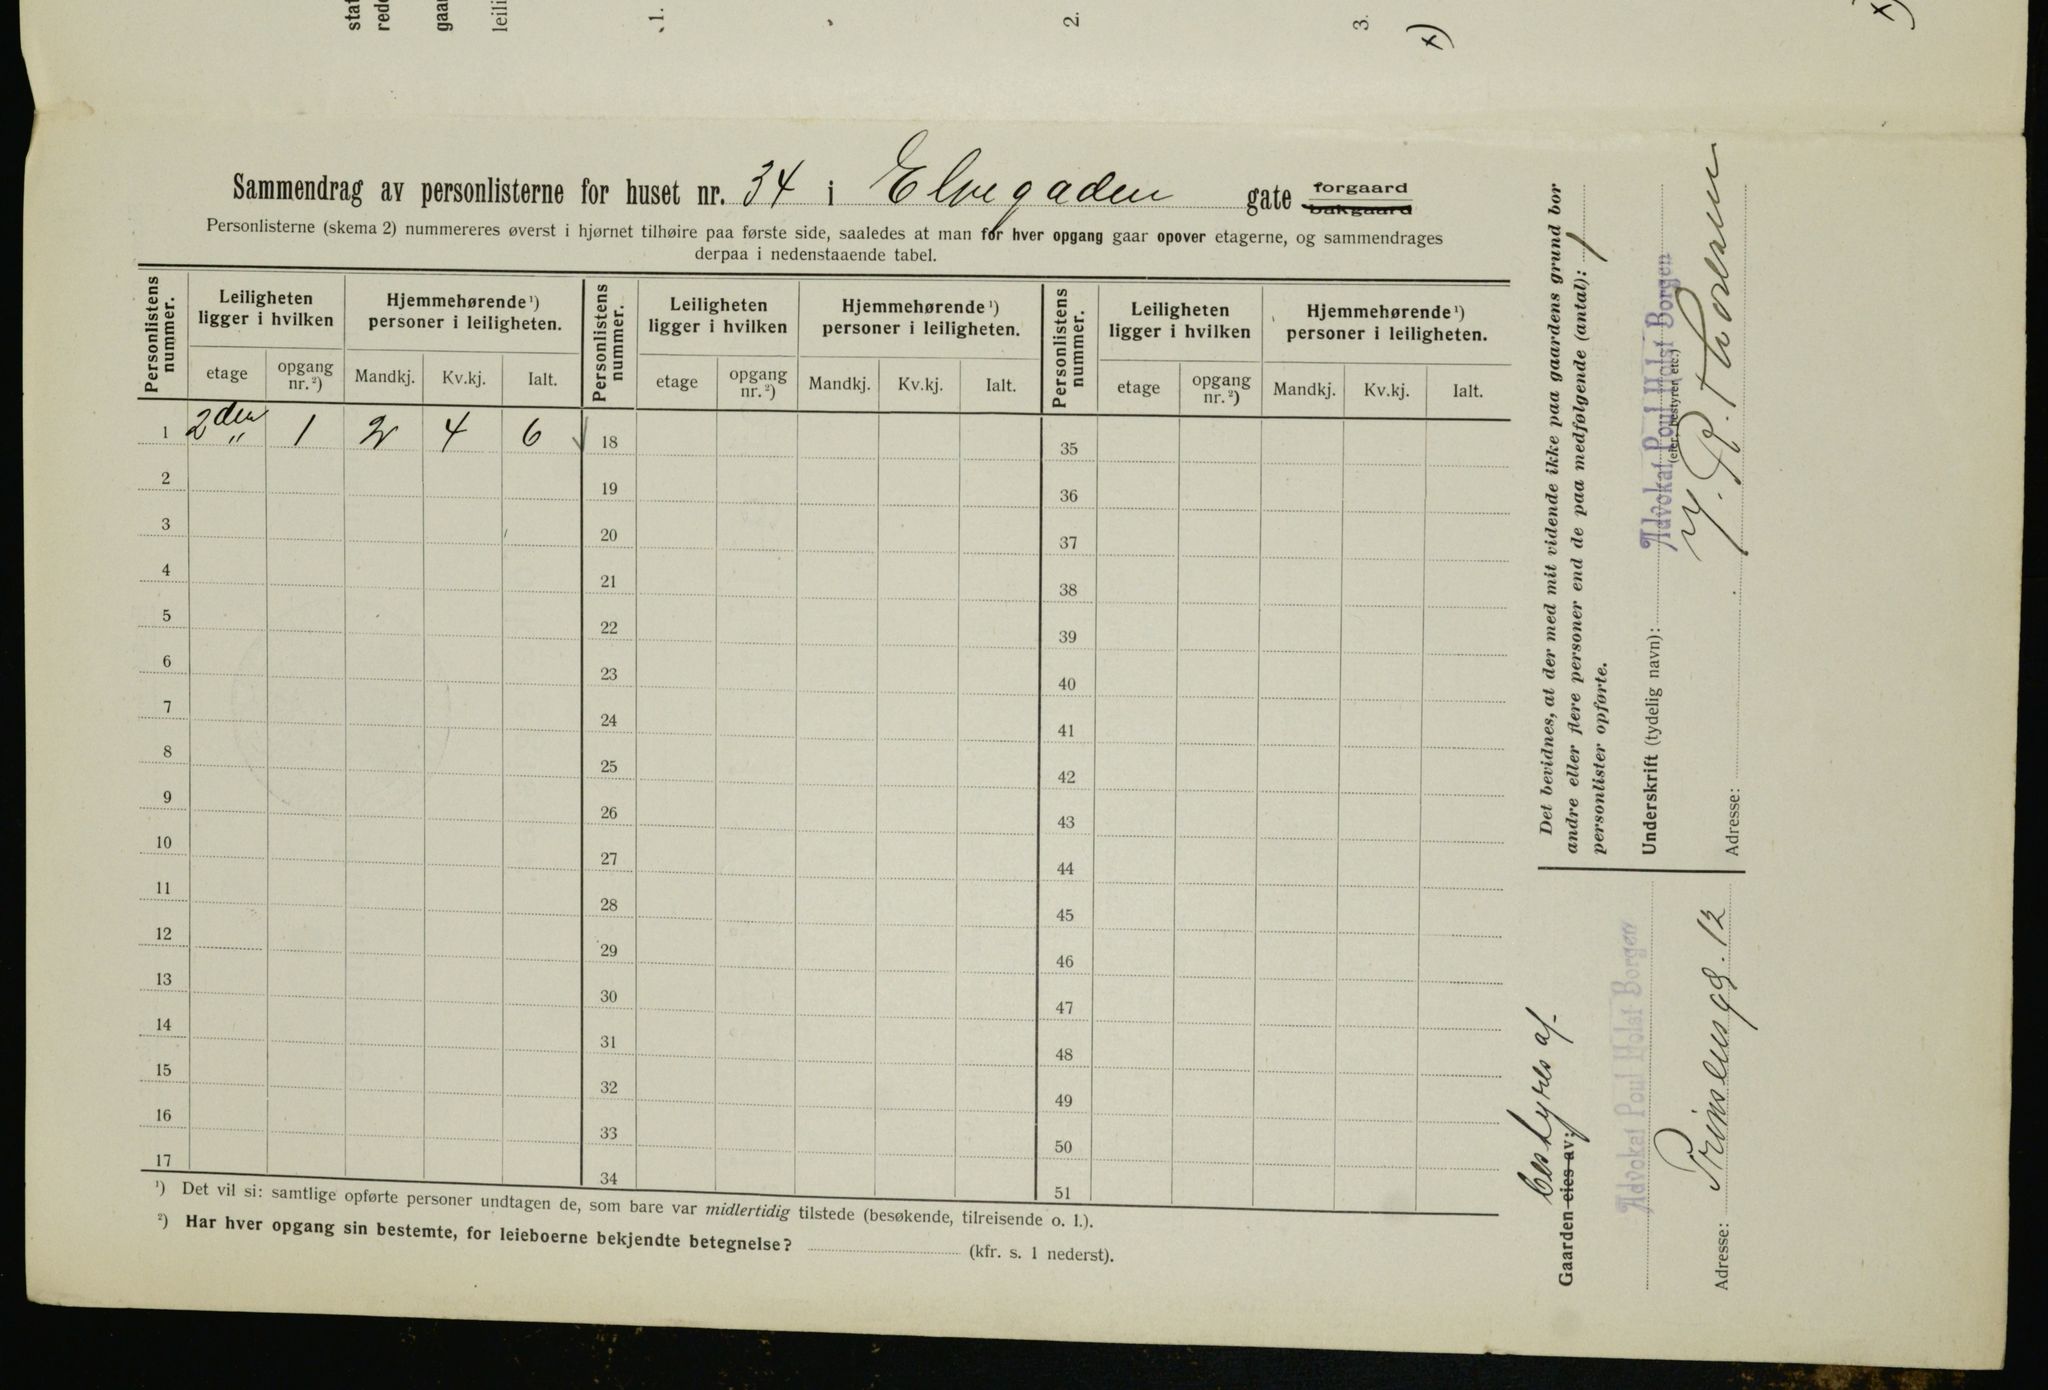 stat
rede
gaar
leili
1.
2.
3.
x)
x)
Sammendrag av personlisterne for huset nr. 34 i Elvegaden gate forgaard bakgaard
Personlisterne (skema 2) nummereres øverst i hjørnet tilhøire paa første side, saaledes at man for hver opgang gaar opover etagerne, og sammendrages
derpaa i nedenstaaende tabel.
Personlistens nummer. Leiligheten ligger i hvilken Hjemmehørende ¹) personer i leiligheten. Personlistens nummer. Leiligheten ligger i hvilken Hjemmehørende ¹) personer i leiligheten. Personlistens nummer. Leiligheten ligger i hvilken Hjemmehørende ¹) personer i leiligheten.
etage opgang nr. ²) Mandkj. Kv.kj. Ialt. etage opgang nr. ²) Mandkj. Kv.kj. Ialt. etage opgang nr. ²) Mandkj. Kv.kj. Ialt.
1 2den 1 2 4 6 18 35
2 19 36
3 20 37
4 21 38
5 22 39
6 23 40
7 24 41
8 25 42
9 26 43
10 27 44
11 28 45
12 29 46
13 30 47
14 31 48
15 32 49
16 33 50
17 34 51
¹) Det vil si: samtlige opførte personer undtagen de, som bare var midlertidig tilstede (besøkende, tilreisende o. l.).
²) Har hver opgang sin bestemte, for leieboerne bekjendte betegnelse? (kfr. s. 1 nederst).
Det bevidnes, at der med mit vidende ikke paa gaardens grund bor
andre eller flere personer end de paa medfølgende (antal): 1
personlister opførte.
Underskrift (tydelig navn):
Advokat Poul Holst Borgen
(eier, bestyrer etc.)
Adresse:
bestyres af.
Gaarden eies av:
Advokat Poul Holst Borgen
Adresse: Prinsensg. 12